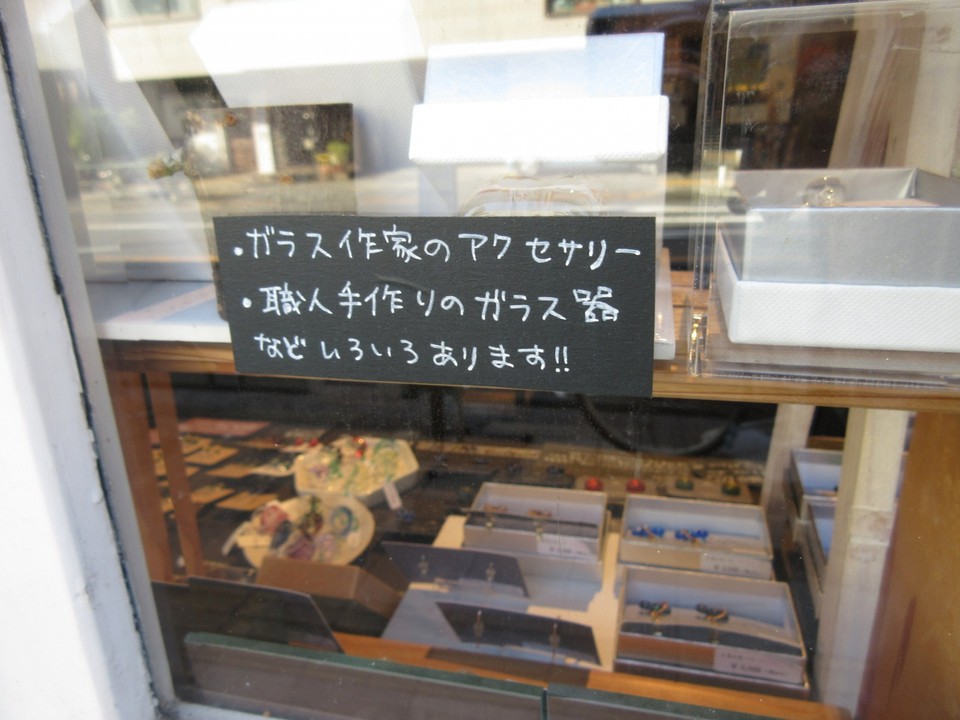 ・ガラス作家のアクセサリー
・職人手作りのガラス器
などいろいろあります!!